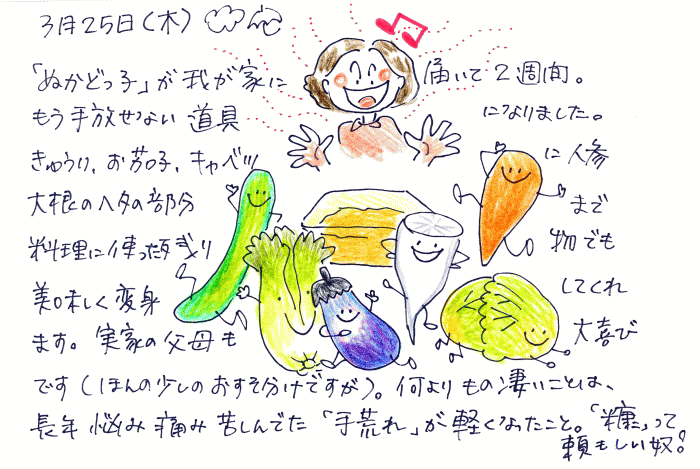 3月25日(木)
「ぬかどっ子」が我が家に届いて2週間。
もう手放せない道具になりました。
きゅうり、お茄子、キャベツに人参
大根のヘタの部分まで
料理に使った残り物でも
美味しく変身してくれ
ます。実家の父母も大喜び
です(ほんの少しのおすそ分けですが)。何よりもの凄いことは、
長年悩み痛み苦しんでた「手荒れ」が軽くなったこと。「糠」って
頼もしい奴!